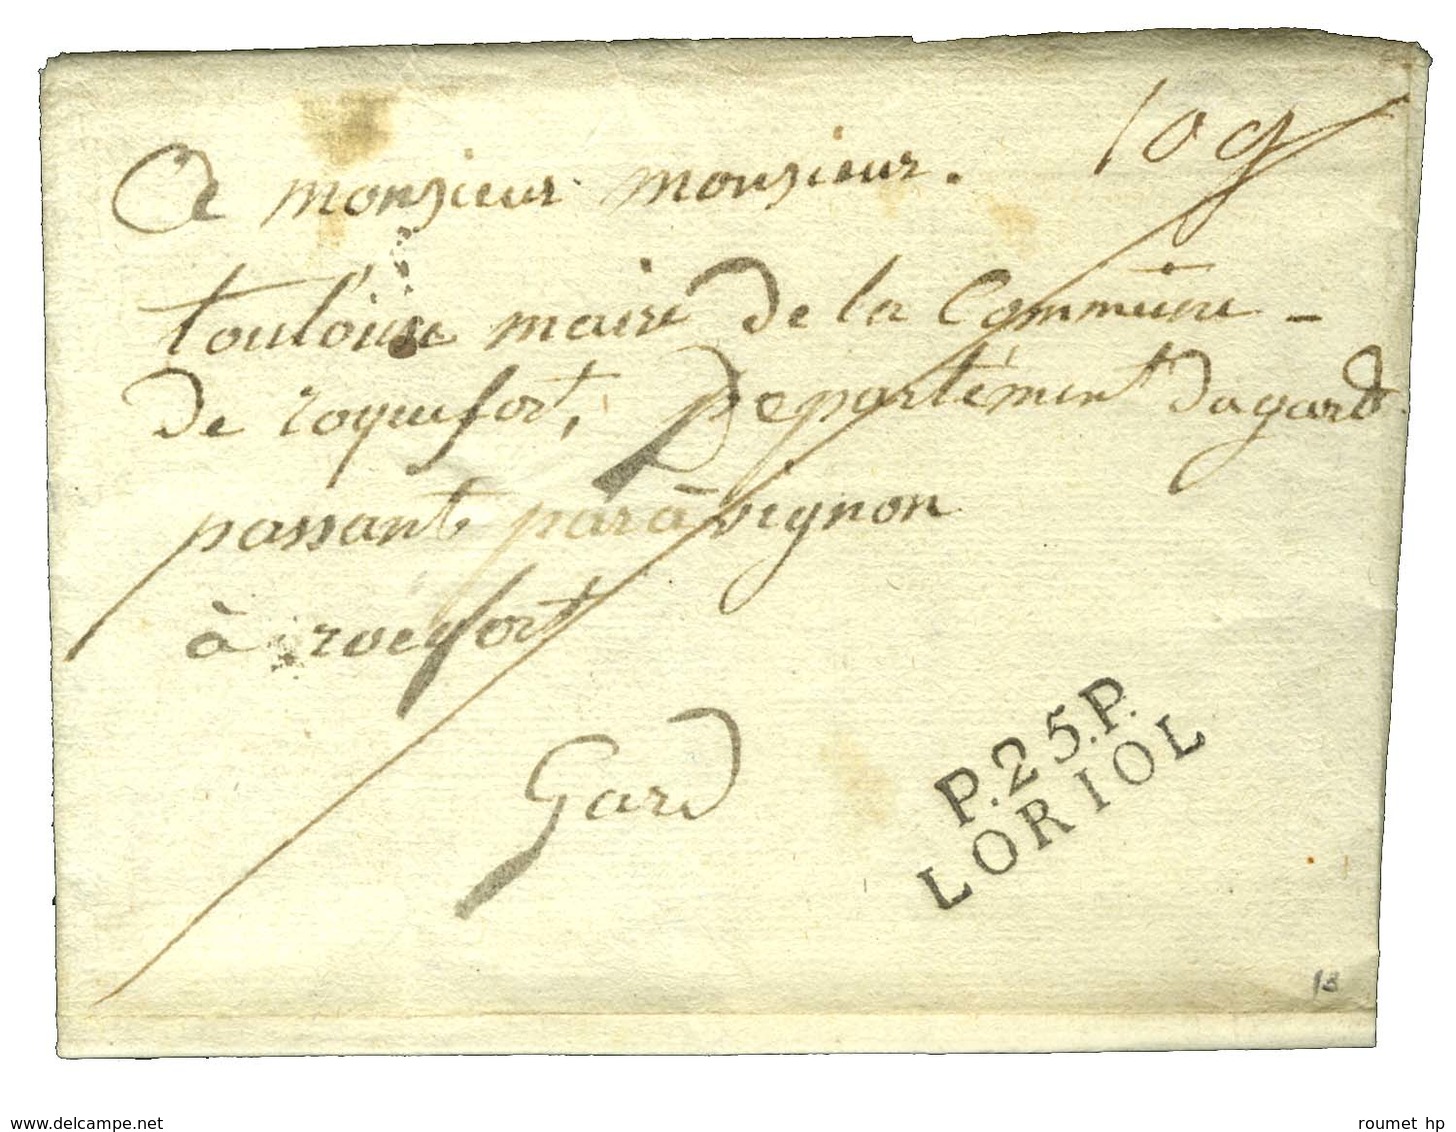 A monsieur monsieur. 10 g
toulouse maire de la Commune -
de roquefort, Departément dugard
passant par àvignon
à rocqfort
Gard
P.25.P.
LORIOL
13
www.delcampe.net
roumet hp